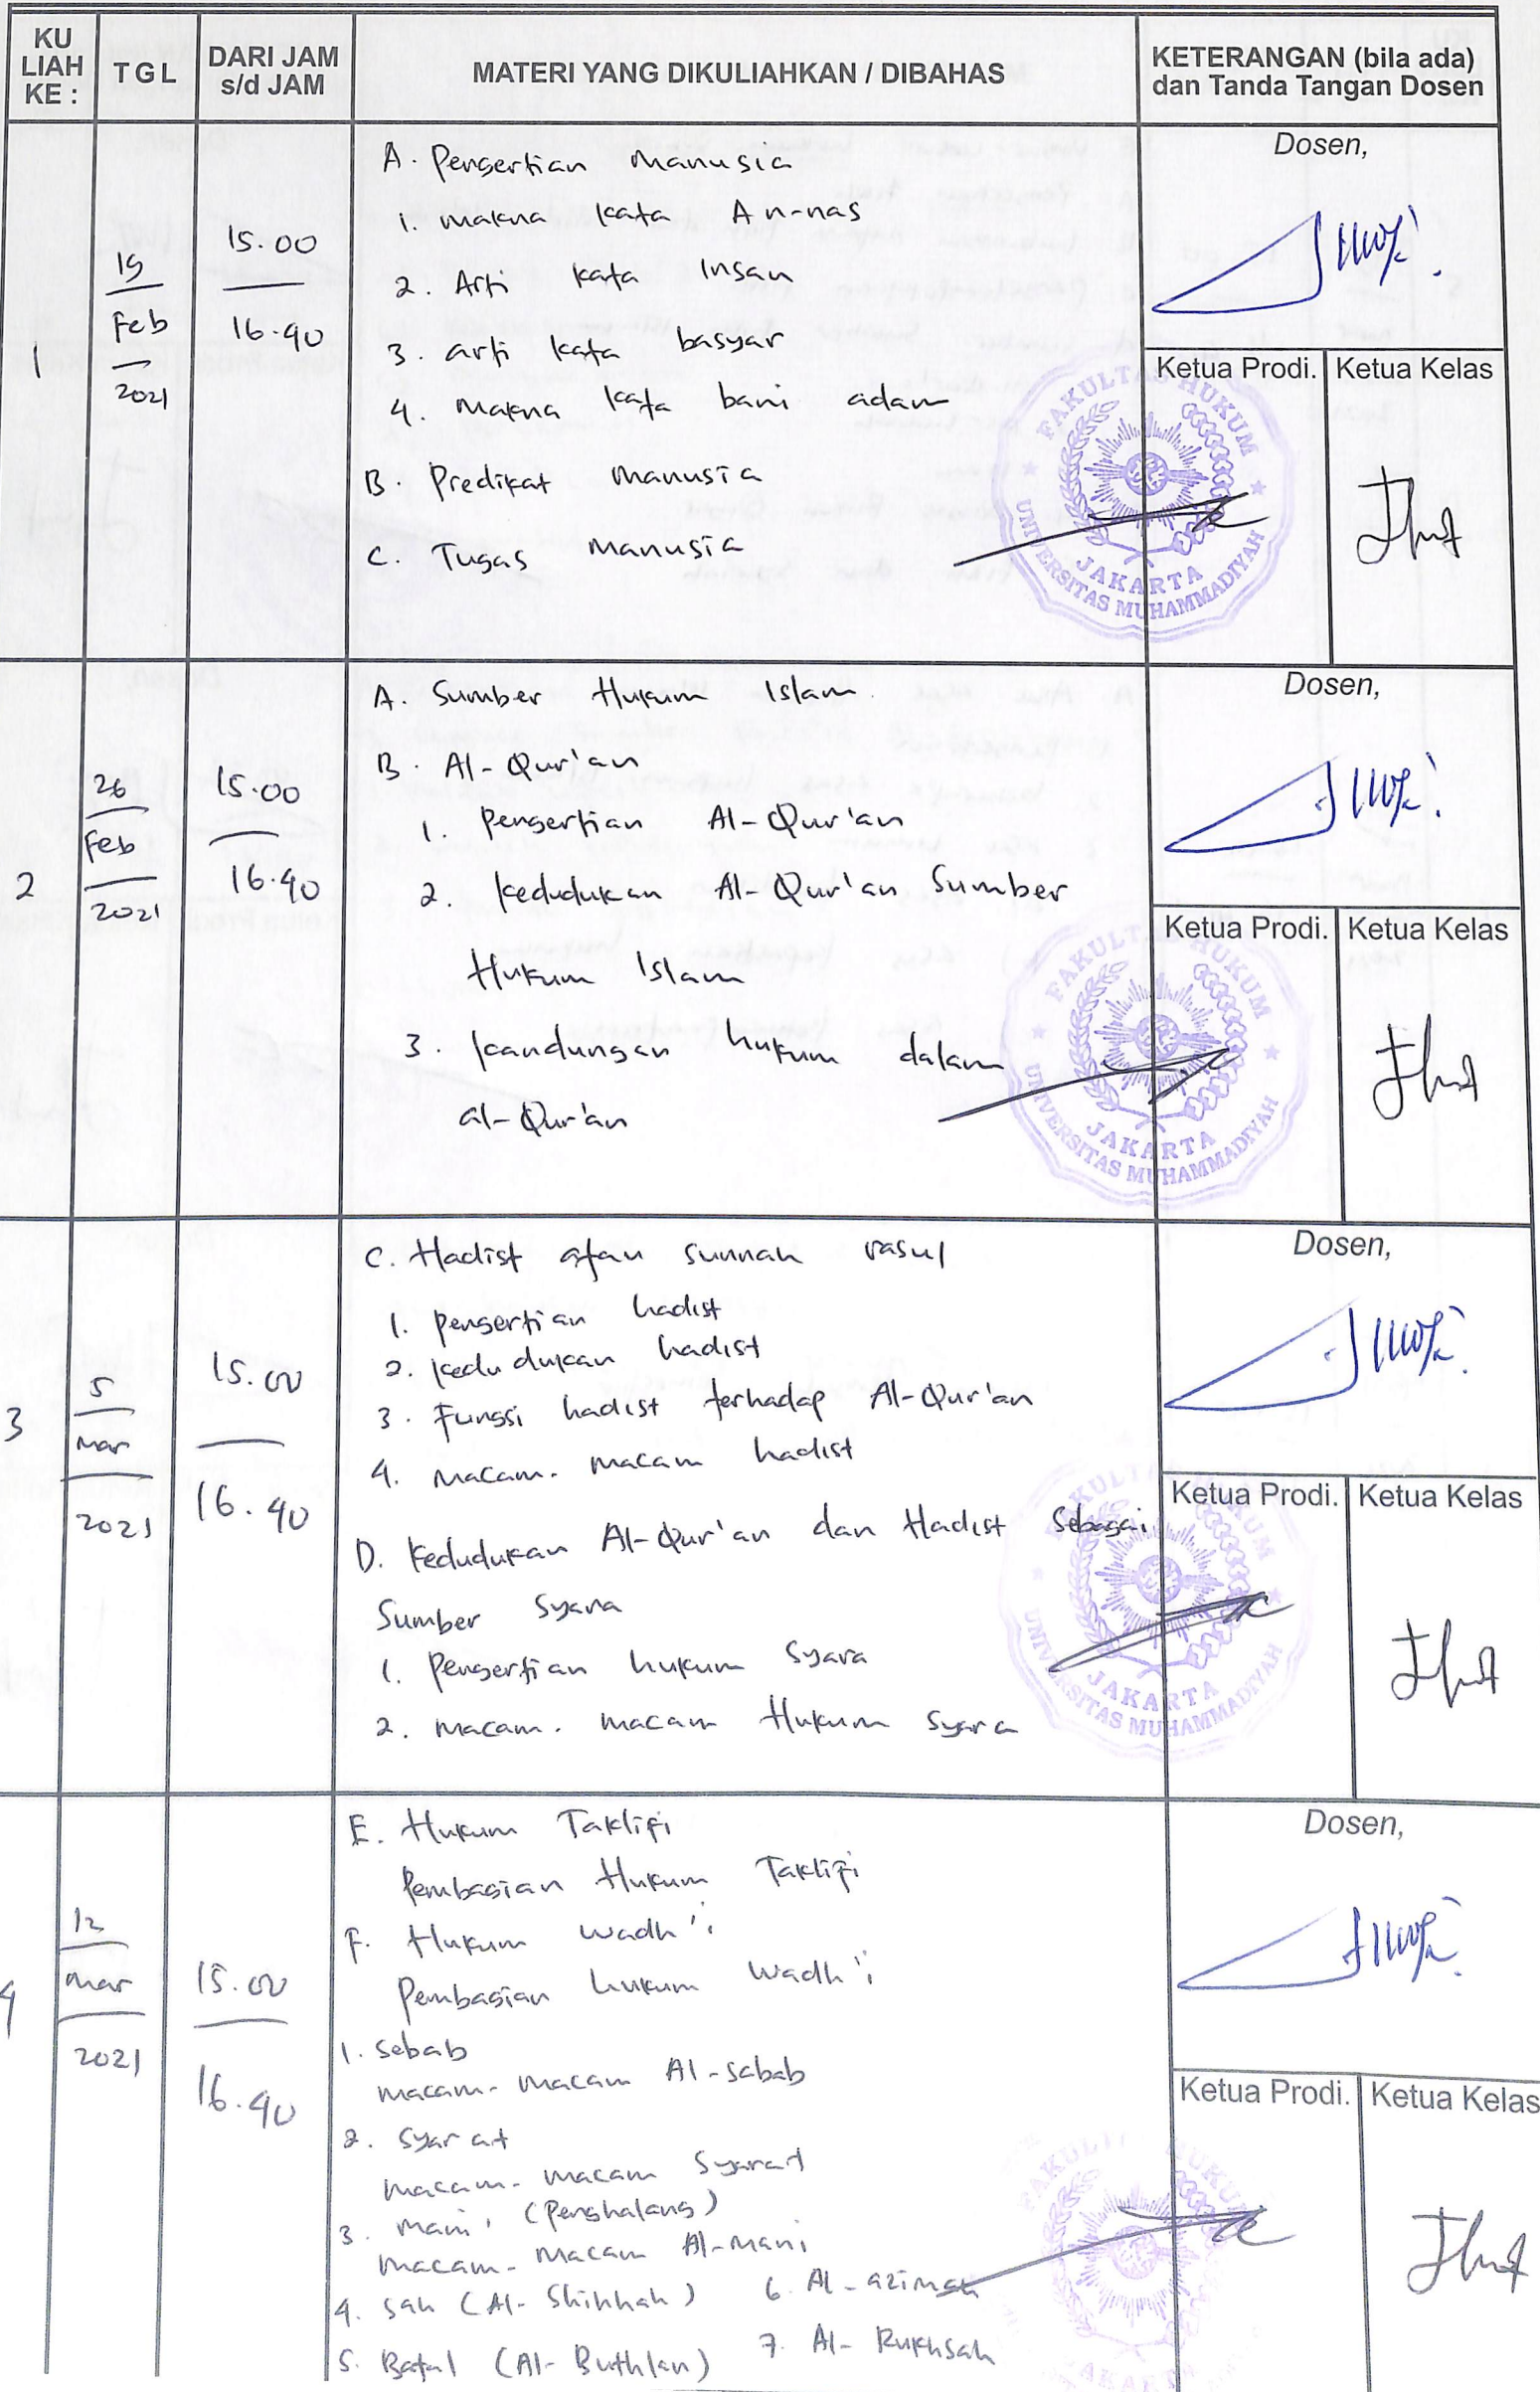 KU LIAH KE :
TGL
DARI JAM s/d JAM
MATERI YANG DIKULIAHKAN / DIBAHAS
KETERANGAN (bila ada) dan Tanda Tangan Dosen
1
19 Feb 2021
15.00
16.40
A. Pengertian Manusia
1. Makna kata An-nas
2. Arti kata Insan
3. arti kata basyar
4. Makna kata bani adam
B. Predikat Manusia
C. Tugas Manusia
Dosen,
Ketua Prodi.
Ketua Kelas
FAKULTAS HUKUM
UNIVERSITAS MUHAMMADIYAH
JAKARTA
2
26 Feb 2021
15.00
16.40
A. Sumber Hukum Islam
B. Al-Qur'an
1. Pengertian Al-Qur'an
2. Kedudukan Al-Qur'an Sumber
Hukum Islam
3. Kandungan hukum dalam
al-Qur'an
Dosen,
Ketua Prodi.
Ketua Kelas
FAKULTAS HUKUM
UNIVERSITAS MUHAMMADIYAH
JAKARTA
3
5 Mar 2021
15.00
16.40
C. Hadist atau sunnah rasul
1. pengertian hadist
2. Kedudukan hadist
3. Fungsi hadist terhadap Al-Qur'an
4. Macam-macam hadist
D. Kedudukan Al-Qur'an dan Hadist Sebagai
Sumber Syara
1. Pengertian hukum Syara
2. Macam-macam Hukum Syara
Dosen,
Ketua Prodi.
Ketua Kelas
FAKULTAS HUKUM
UNIVERSITAS MUHAMMADIYAH
JAKARTA
4
12 Mar 2021
15.00
16.40
E. Hukum Taklifi
Pembagian Hukum Taklifi
F. Hukum Wadh'i
Pembagian hukum Wadh'i
1. Sebab
Macam-macam Al-sabab
2. Syarat
Macam-macam Syarat
3. Mani' (Penghalang)
Macam-macam Al-mani
4. Sah (Al-Shihhah)
5. Batal (Al-Buthlan)
6. Al-azimah
7. Al-Rukhsah
Dosen,
Ketua Prodi.
Ketua Kelas